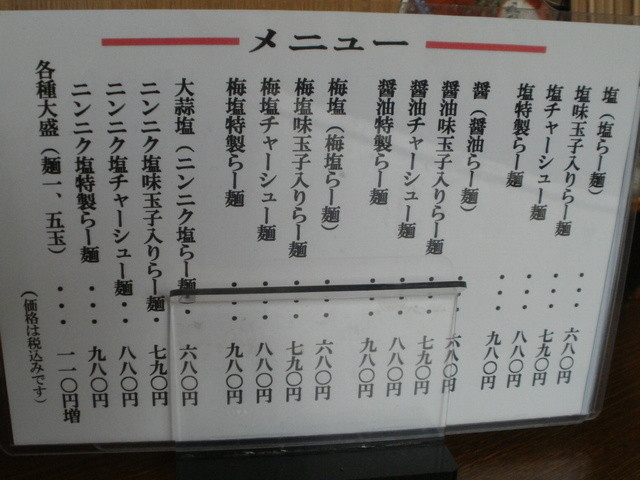 メニュー
塩（塩らー麺）・・・六八〇円
塩味玉子入りらー麺・・・七九〇円
塩チャーシュー麺・・・八八〇円
塩特製らー麺・・・九八〇円
醤（醤油らー麺）・・・六八〇円
醤油味玉子入りらー麺・・・七九〇円
醤油チャーシュー麺・・・八八〇円
醤油特製らー麺・・・九八〇円
梅塩（梅塩らー麺）・・・六八〇円
梅塩味玉子入りらー麺・・・七九〇円
梅塩チャーシュー麺・・・八八〇円
梅塩特製らー麺・・・九八〇円
大蒜塩（ニンニク塩らー麺・六八〇円
ニンニク塩味玉子入りらー麺・七九〇円
ニンニク塩チャーシュー麺・・八八〇円
ニンニク塩特製らー麺・・・九八〇円
各種大盛（麺一、五玉）・・・一一〇円増
（価格は税込みです）